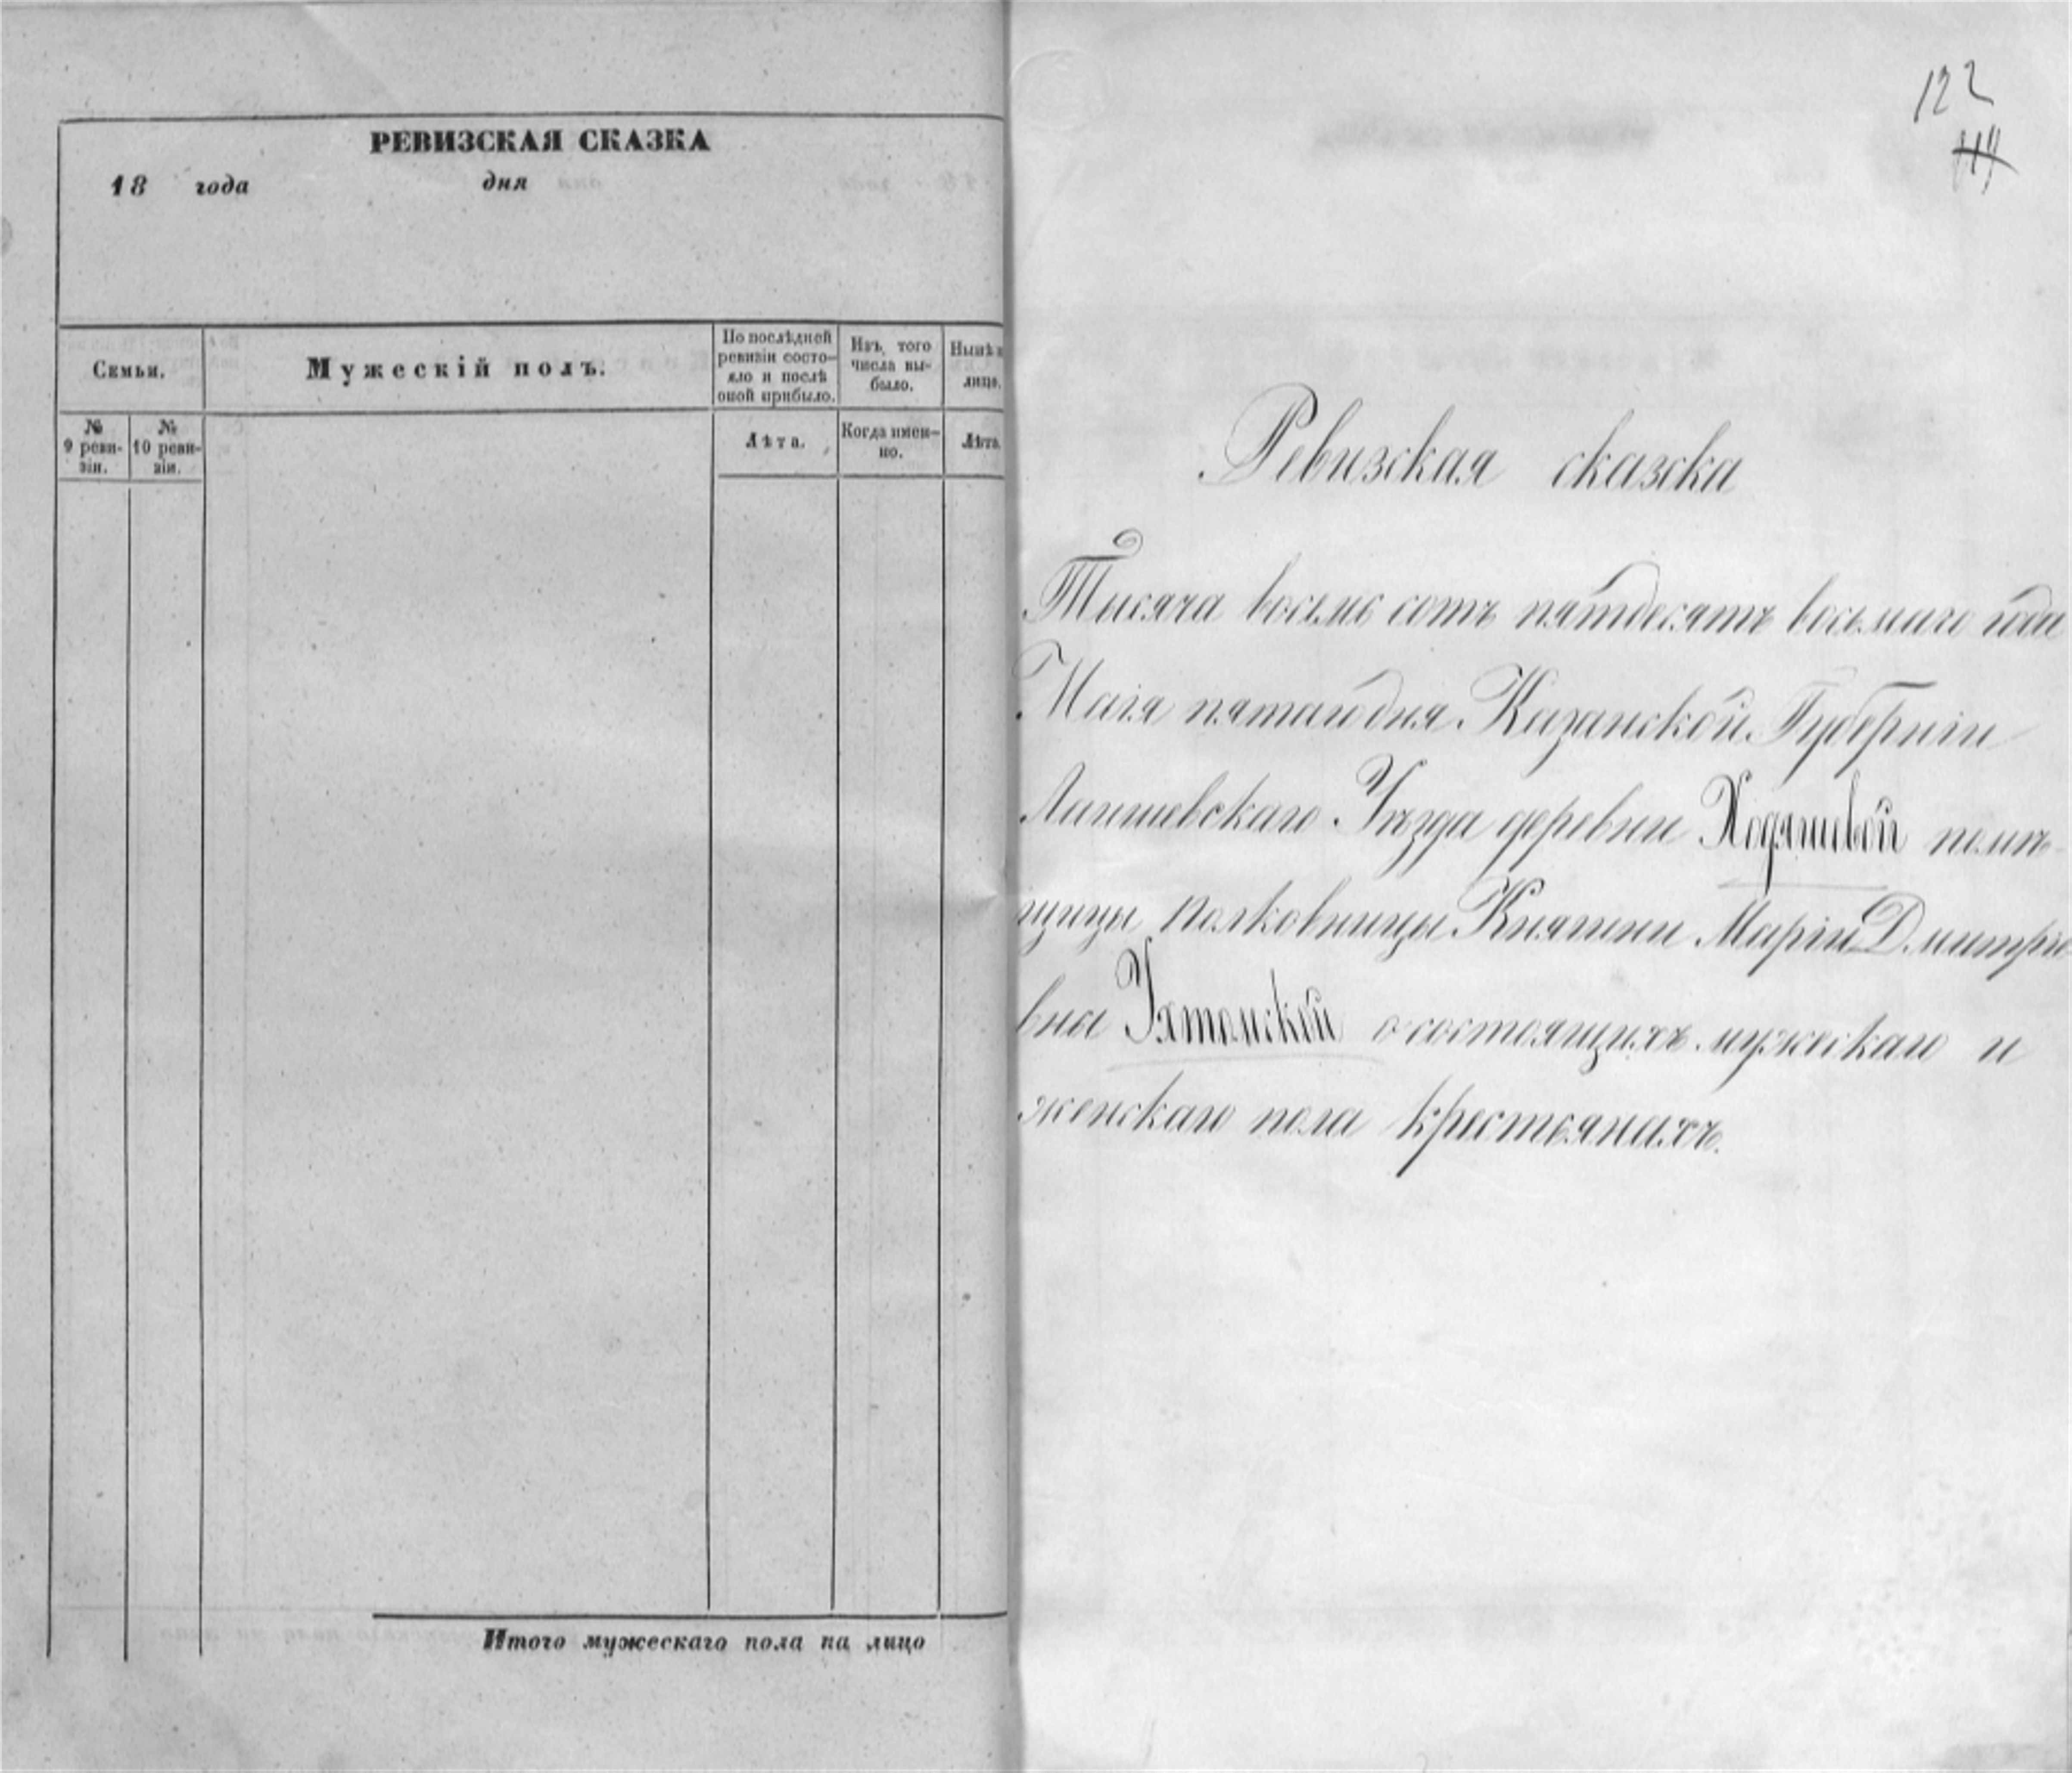 РЕВИЗСКАЯ СКАЗКА
18 года дня
Семьи.
Мужескій полъ.
По послѣдней
ревизіи состо-
яло и послѣ
оной прибыло.
Изъ того
числа вы-
было.
Нынѣ н
лицо.
№
9 реви-
зіи.
№
10 реви-
зіи.
Лѣта.
Когда имен-
но.
Лѣта
Итого мужескаго пола на лицо
122
Ревизская сказка
Тысяча восемь сотъ пятдесятъ восьмаго года
Маія пятаго дня Казанской Губерніи
Лаишевскаго Уѣзда деревни Ходяшевой помѣ-
щицы Полковницы Княгини Маріи Дмитріе
вны Ухтомской о состоящихъ мужескаго и
женскаго пола крестьянахъ.